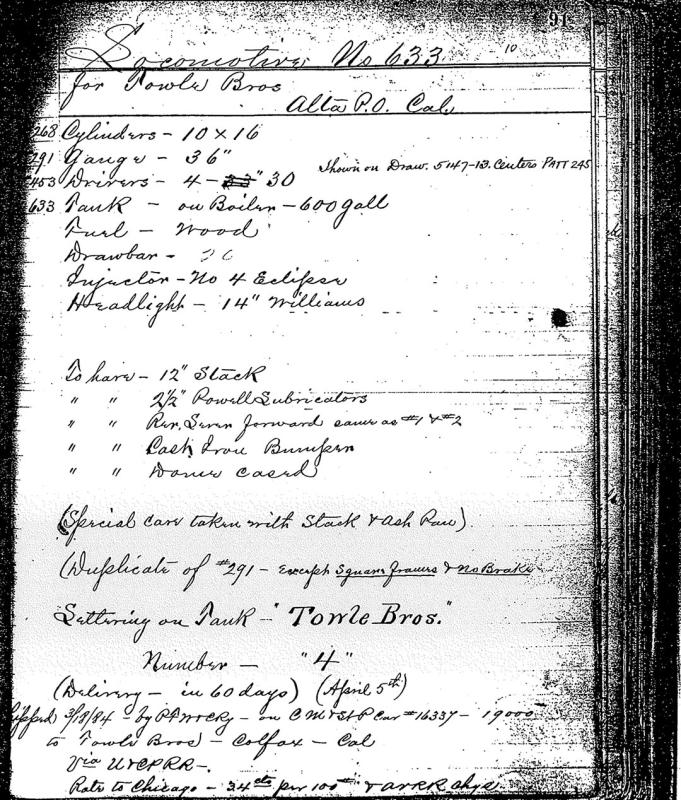 91
Locomotive No 633 10
for Towle Bros
Alta P.O. Cal.
268 Cylinders - 10 x 16
291 Gauge - 36"
Shown on Draw. 5147-13. Centers PATT 245
453 Drivers - 4 - 33" 30
633 Tank - on Boiler - 600 gall
Fuel - Wood
Drawbar -
Injector - No 4 Eclipse
Headlight - 14" Williams
To have - 12" Stack
" " 2½" Powell Lubricators
" " Rev. Lever forward same as #1 & #2
" " Cast Iron Bumper
" " Dome cased
(Special care taken with Stack & Ash Pan)
(Duplicate of #291 - except Square frames & No Brake
Lettering on Tank - "Towle Bros."
Number - "4"
(Delivery - in 60 days) (April 5th)
Shipped 3/18/84 - by - on C M & St P Car #16337 - 19000
to Towle Bros - Colfax - Cal
Via U & C P RR -
Rate to Chicago - 34cts per 100